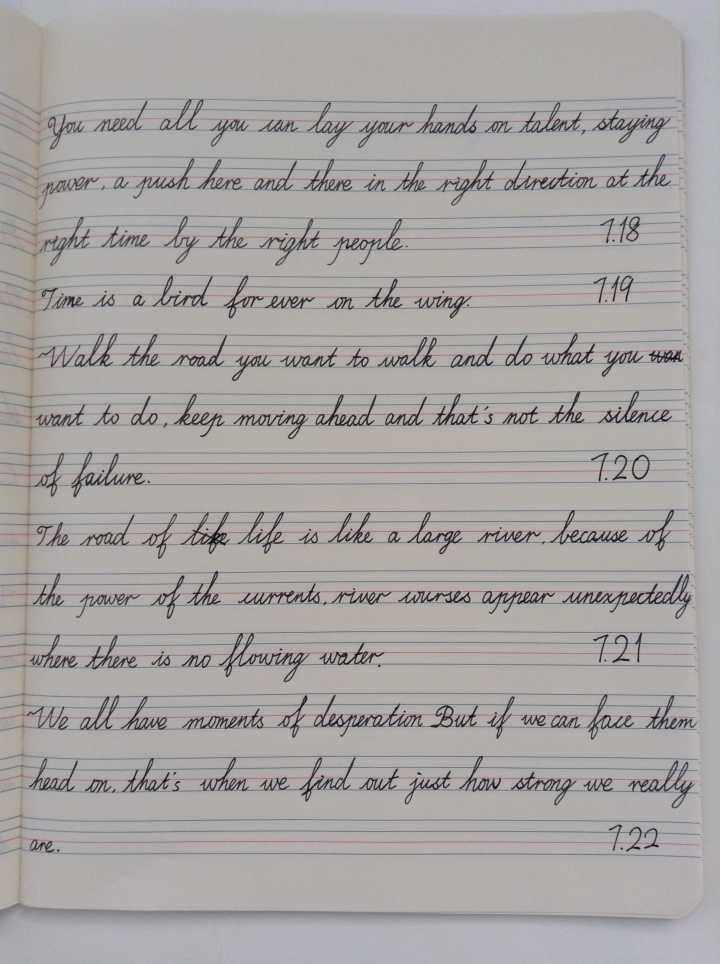 You need all you can lay your hands on talent, staying
power, a push here and there in the right direction at the
right time by the right people. 7.18
Time is a bird for ever on the wing. 7.19
Walk the road you want to walk and do what you wan
want to do, keep moving ahead and that's not the silence
of failure. 7.20
The road of life life is like a large river, because of
the power of the currents, river courses appear unexpectedly
where there is no flowing water. 7.21
We all have moments of desperation But if we can face them
head on, that's when we find out just how strong we really
are. 7.22